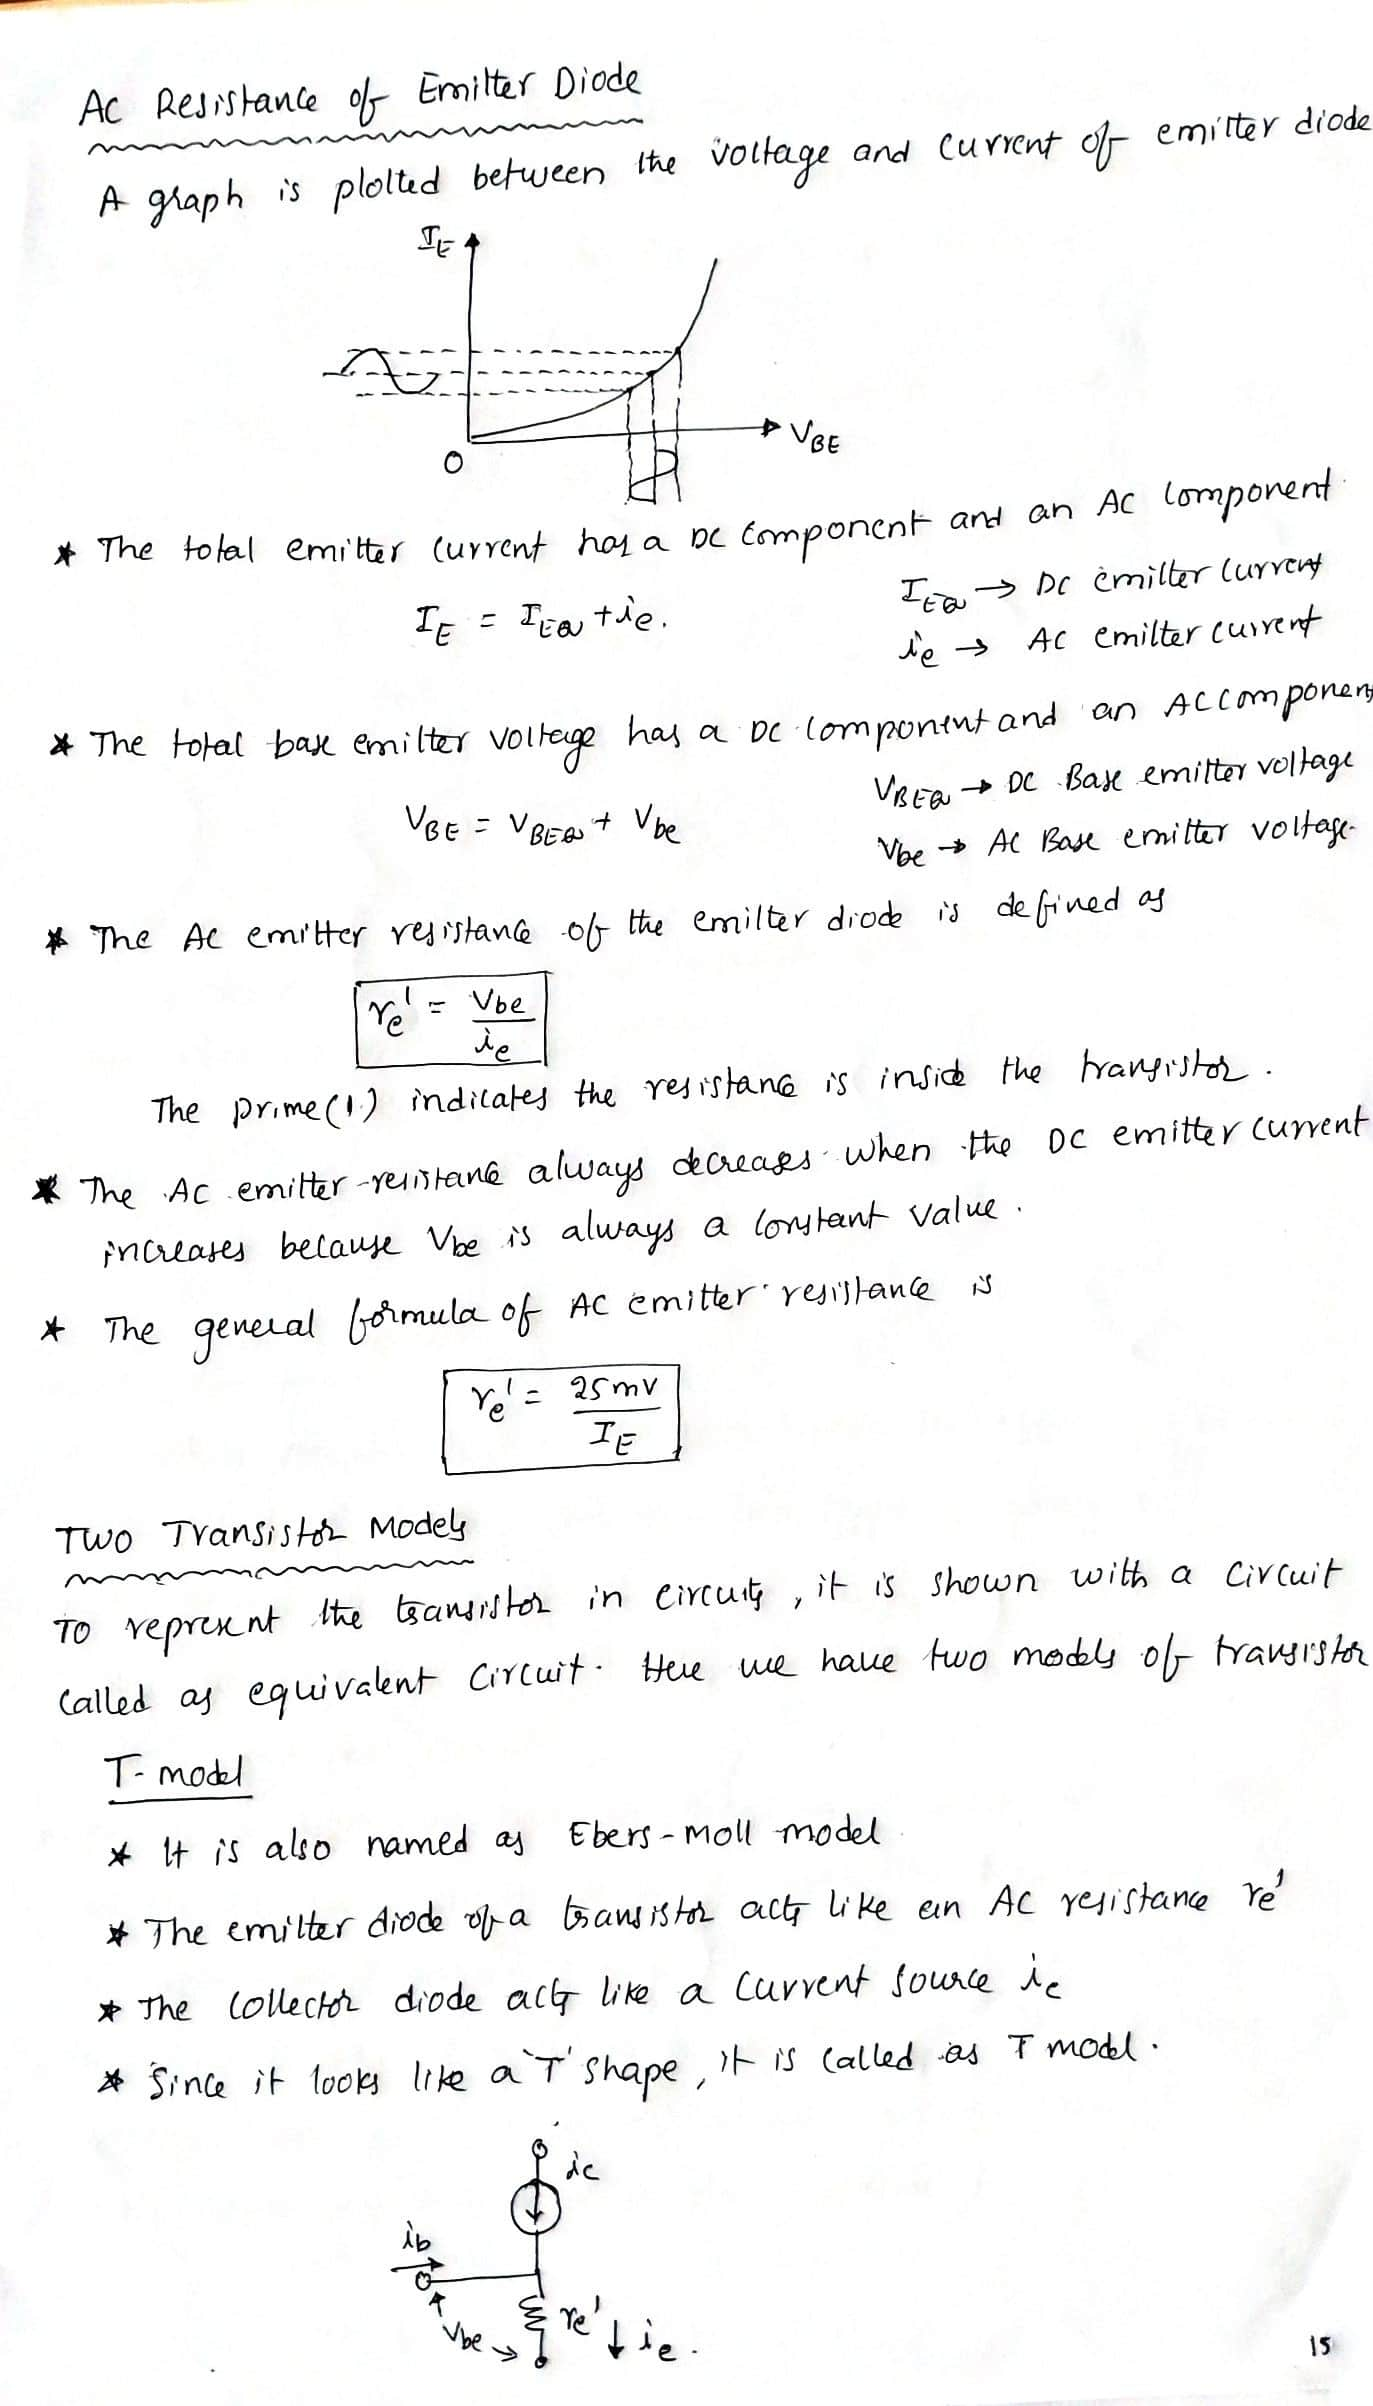 AC Resistance of Emitter Diode
A graph is plotted between the voltage and current of emitter diode
IE
VBE
O
* The total emitter current has a DC component and an AC component
IE = IEQ + ie.
IEQ → DC emitter current
ie → AC emitter current
* The total base emitter voltage has a DC component and an AC component
VBE = VBEQ + Vbe
VBEQ → DC Base emitter voltage
Vbe → AC Base emitter voltage
* The AC emitter resistance of the emitter diode is defined as
re' = Vbe / ie
The prime (') indicates the resistance is inside the transistor.
* The AC emitter resistance always decreases when the DC emitter current
increases because Vbe is always a constant value.
* The general formula of AC emitter resistance is
re' = 25mV / IE
Two Transistor Models
To represent the transistor in circuits, it is shown with a circuit
called as equivalent circuit. Here we have two models of transistor
T-model
* It is also named as Ebers-moll model
* The emitter diode of a transistor acts like an AC resistance re'
* The collector diode acts like a current source ic
* Since it looks like a 'T' shape, it is called as T model.
ic
ib
re' ↓ ie.
Vbe
15